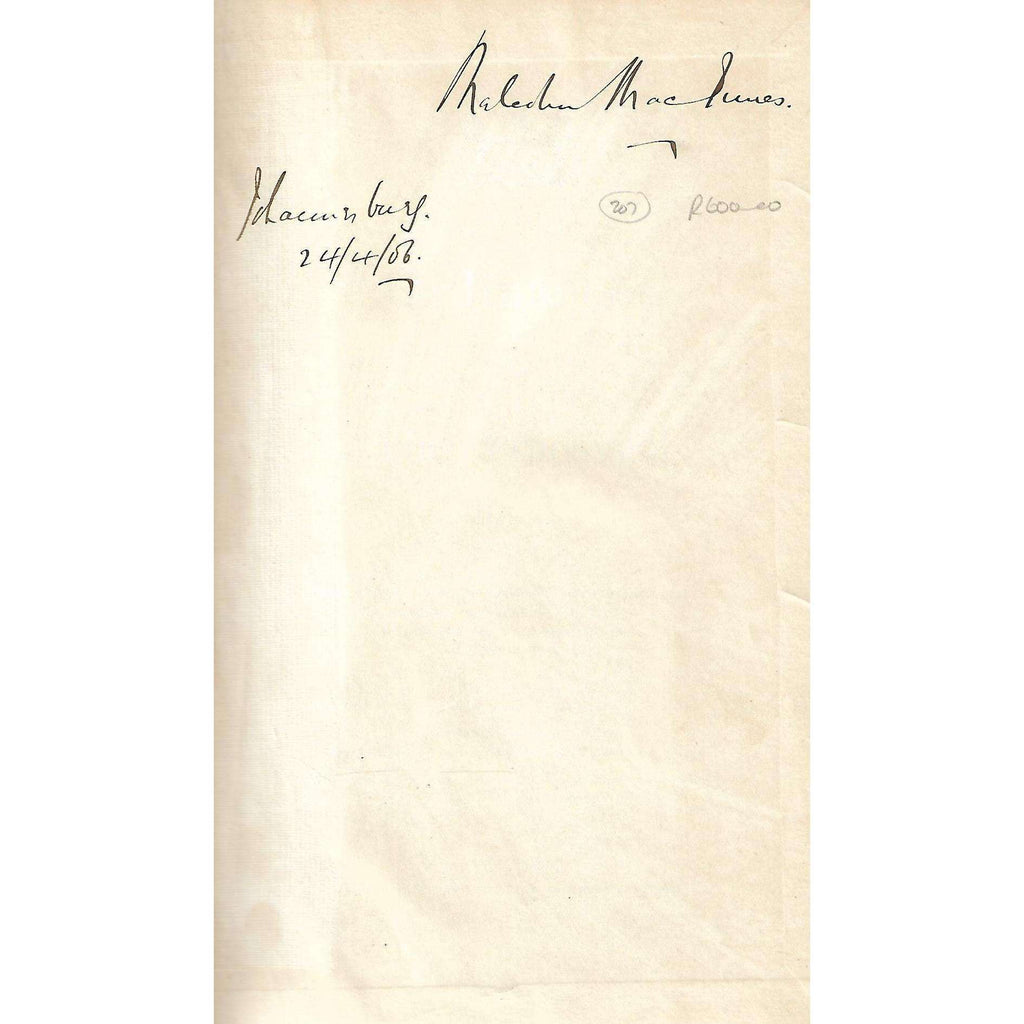 Malcolm MacInnes.
Johannesburg.
24/4/06.
207
R600-00